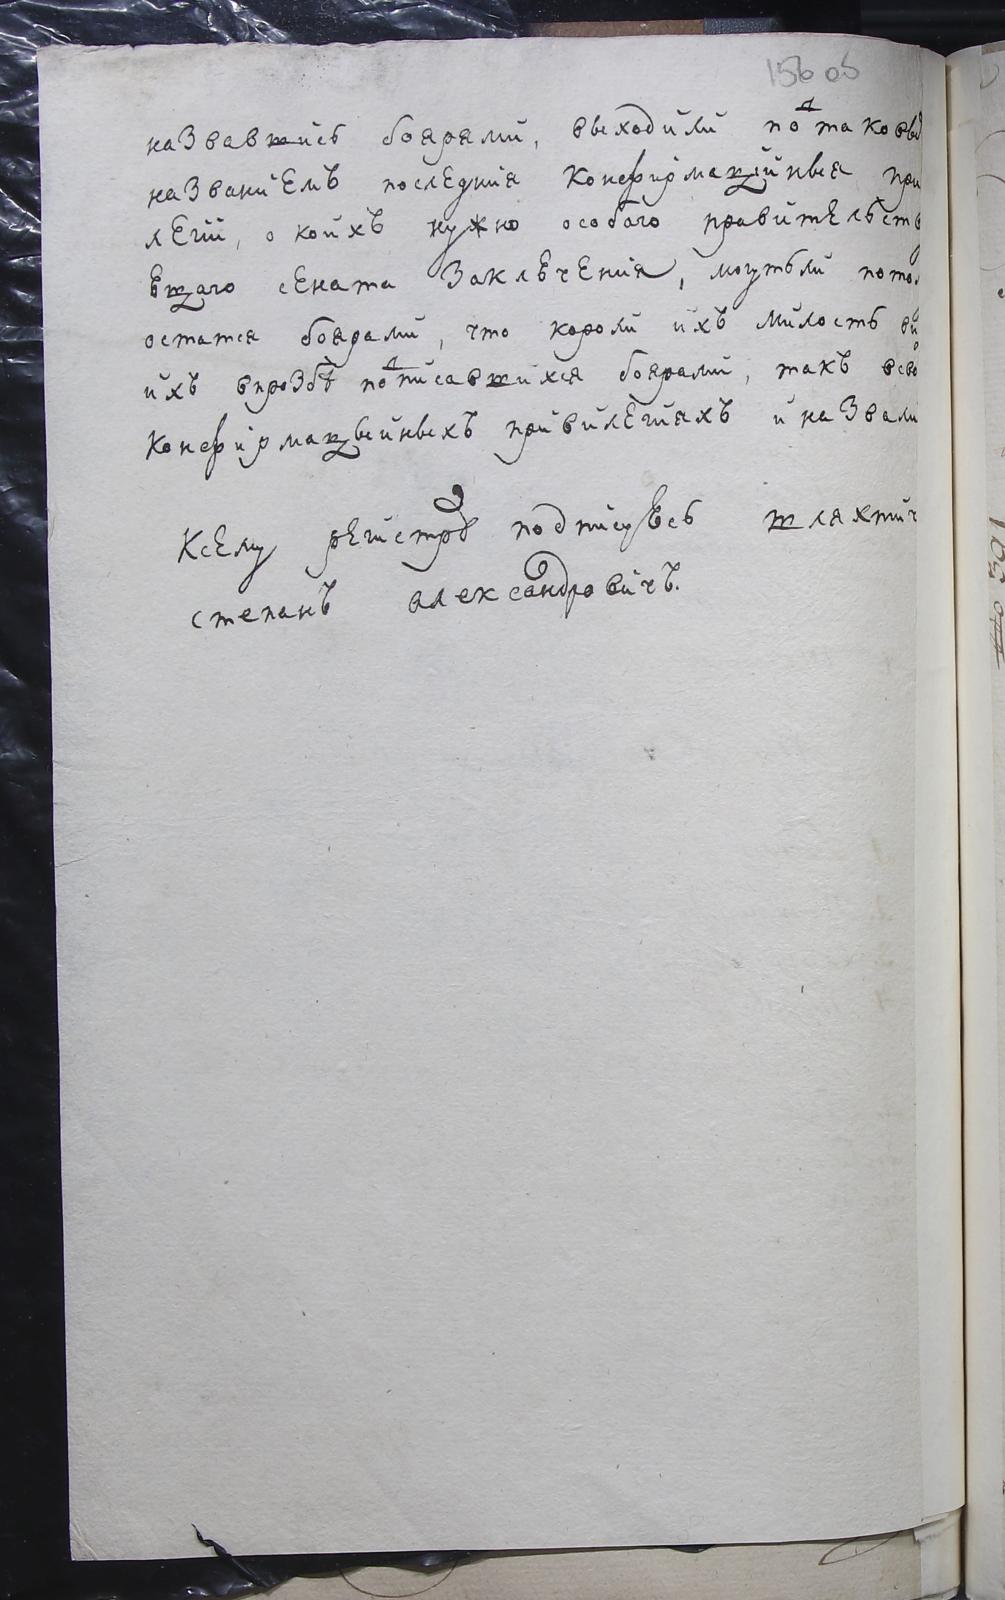 156 об
назвавшись боярами, выходили подтаковы
названиемъ последния конфирмацийныя при
легии, о коихъ нужно особаго правительств
ющаго сената заключения, могутъли пото
остатся боярами, что короли ихъ милость
ихъ впрозбѣ подписавшихся боярами, такъ
конфирмацыйныхъ привилегияхъ и назвали
Ксему регистрѣ подписуюсь шляхтич
степанъ александровичъ.